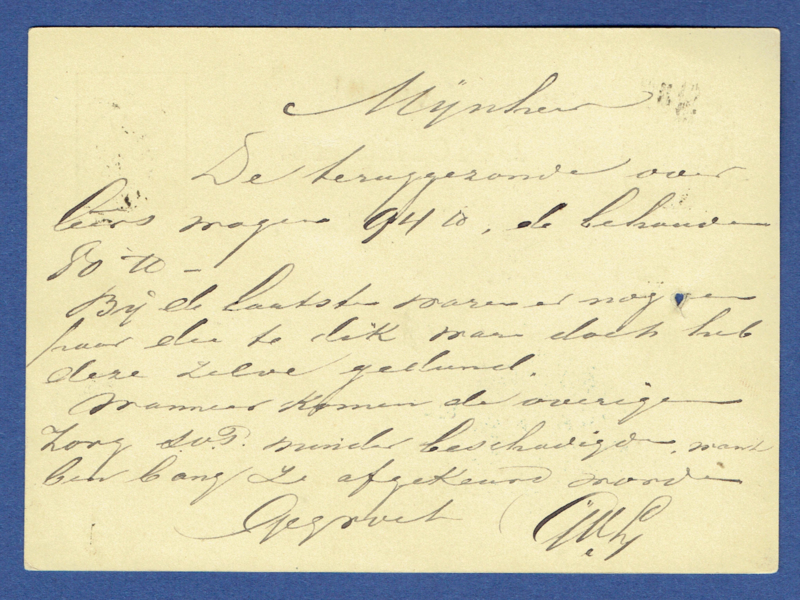 Mijnheer
De teruggezonde over
leers wogen 94 ℔, de behouden
80 ℔ –
Bij de laatste waren er nog een
paar die te dik ware doch heb
deze zelve gedund.
Wanneer komen de overigen
Zorg S.v.P. minder beschadigde, want
ben bang ze afgekeurd worden
Gegroet